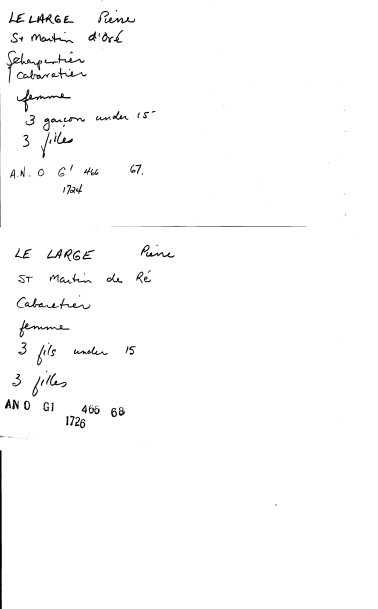 LE LARGE Pierre
St Martin d'Oré
charpentier
cabaretier
femme
3 garçon under 15
3 filles
A.N. O G' 466 67.
1724
LE LARGE Pierre
ST Martin de Ré
Cabaretier
femme
3 fils under 15
3 filles
AN O G1 466 68
1726